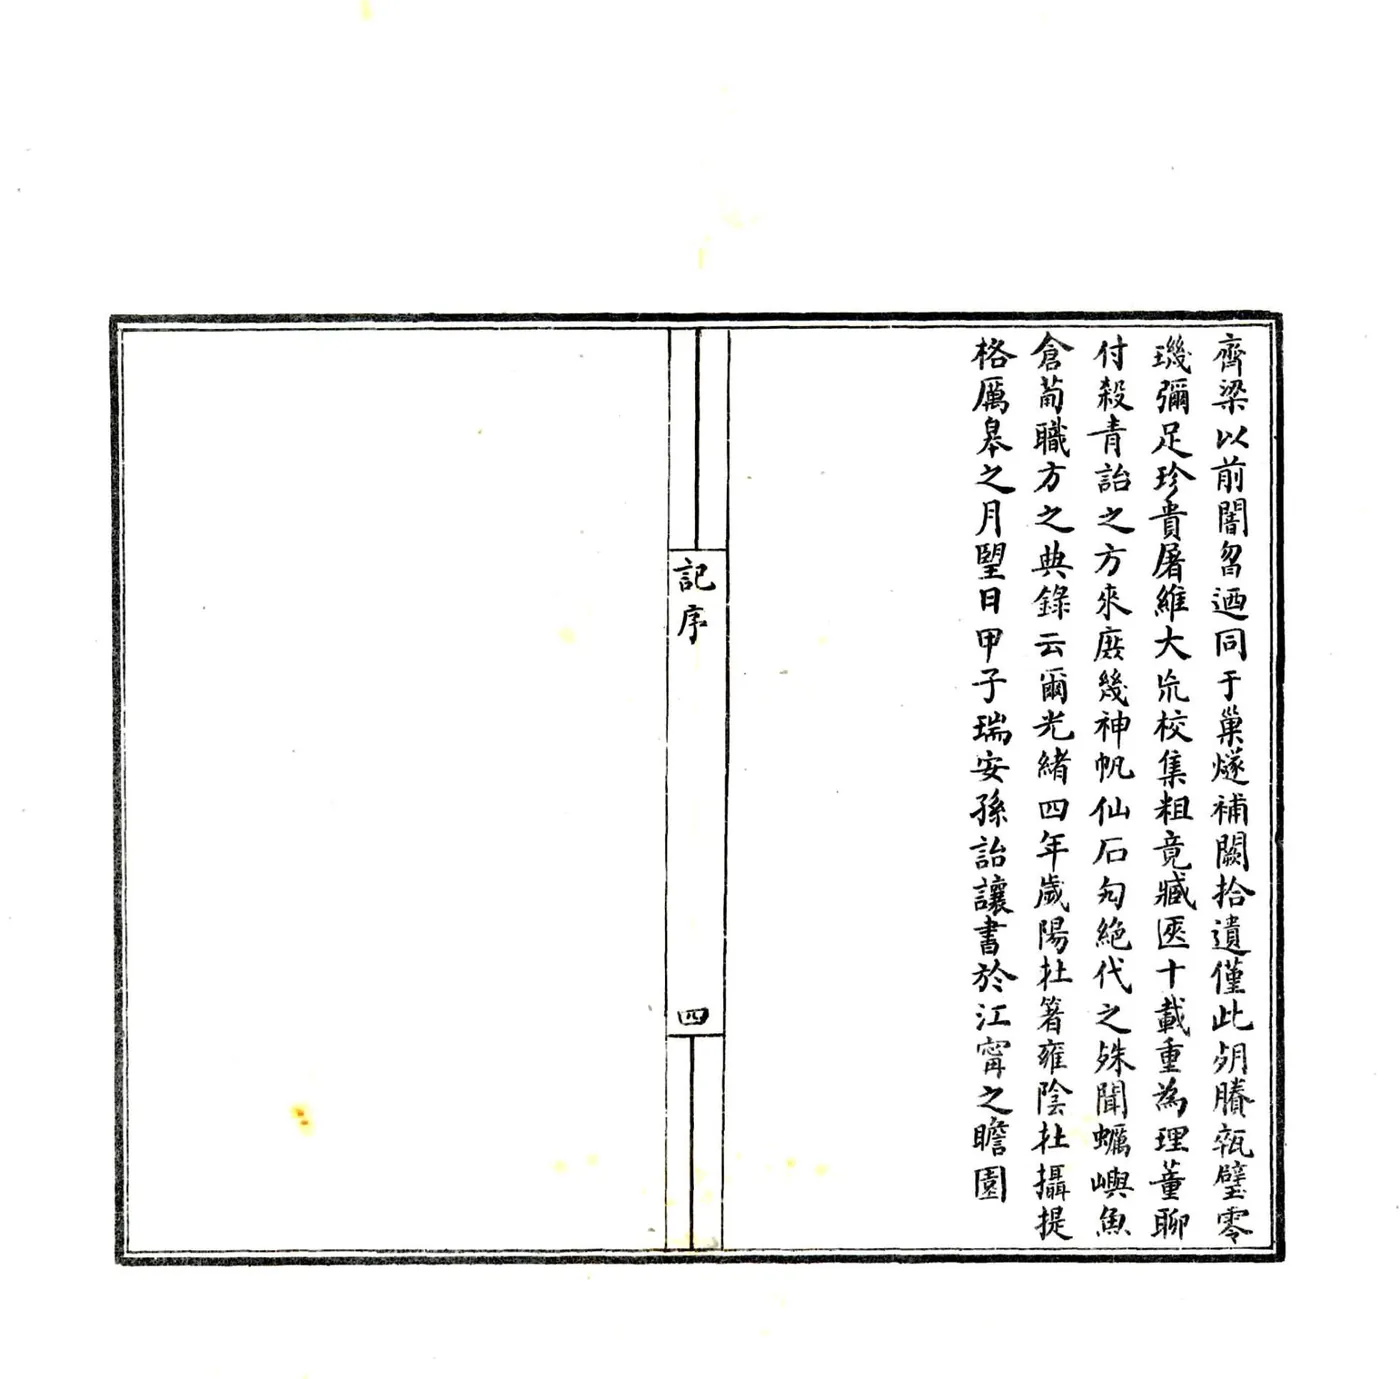 齊梁以前闇曶迺同于巢燧補闕拾遺僅此賸璧零
璣彌足珍貴屠維大巟校集粗竟臧匧十載重為理董聊
付殺青詒之方來庶幾神帆仙石匃絶代之殊聞蠣嶼魚
倉葡職方之典錄云爾光緒四年歲陽在箸雍陰在攝提
格厲皋之月朢日甲子瑞安孫詒讓書於江甯之瞻園
記序
四